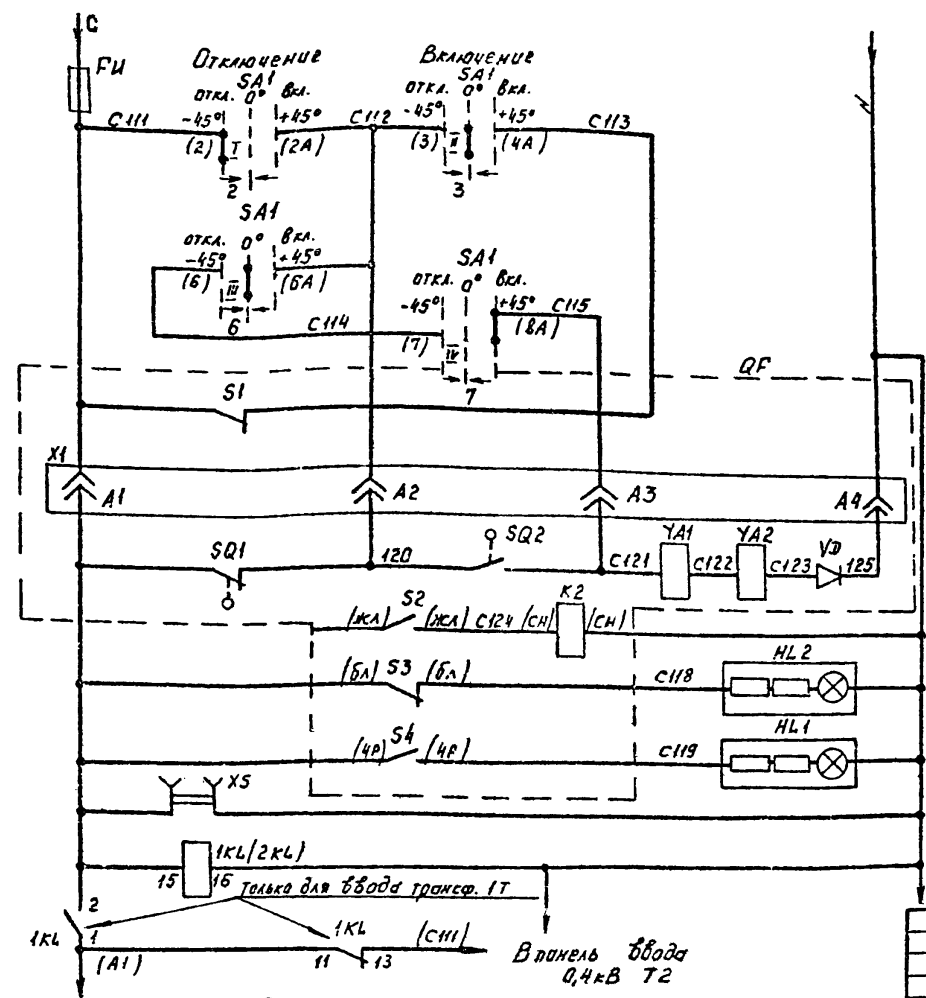 C
FU
Отключение
SA1
откл. 0° вкл.
-45° +45°
C111
(2) I (2A)
2
C112
Включение
SA1
откл. 0° вкл.
-45° +45°
C113
(3) II (4A)
3
SA1
откл. 0° вкл.
-45° +45°
(6) III (6A)
6
C114
SA1
откл. 0° вкл.
-45° +45°
C115
(7) IV (8A)
7
N
QF
S1
X1
A1
A2
A3
A4
SQ1
120
SQ2
C121
YA1
C122
YA2
C123
VD
125
(жл) S2 (жл) C124 (сн) K2 (сн)
(бл) S3 (бл) C118
HL2
(чр) S4 (чр) C119
HL1
X5
1KL(2KL)
15 16
только для ввода трансф. 1Т
2
1KL
1
(A1)
1KL
11 13
(C111)
В панель ввода
0,4кВ Т2